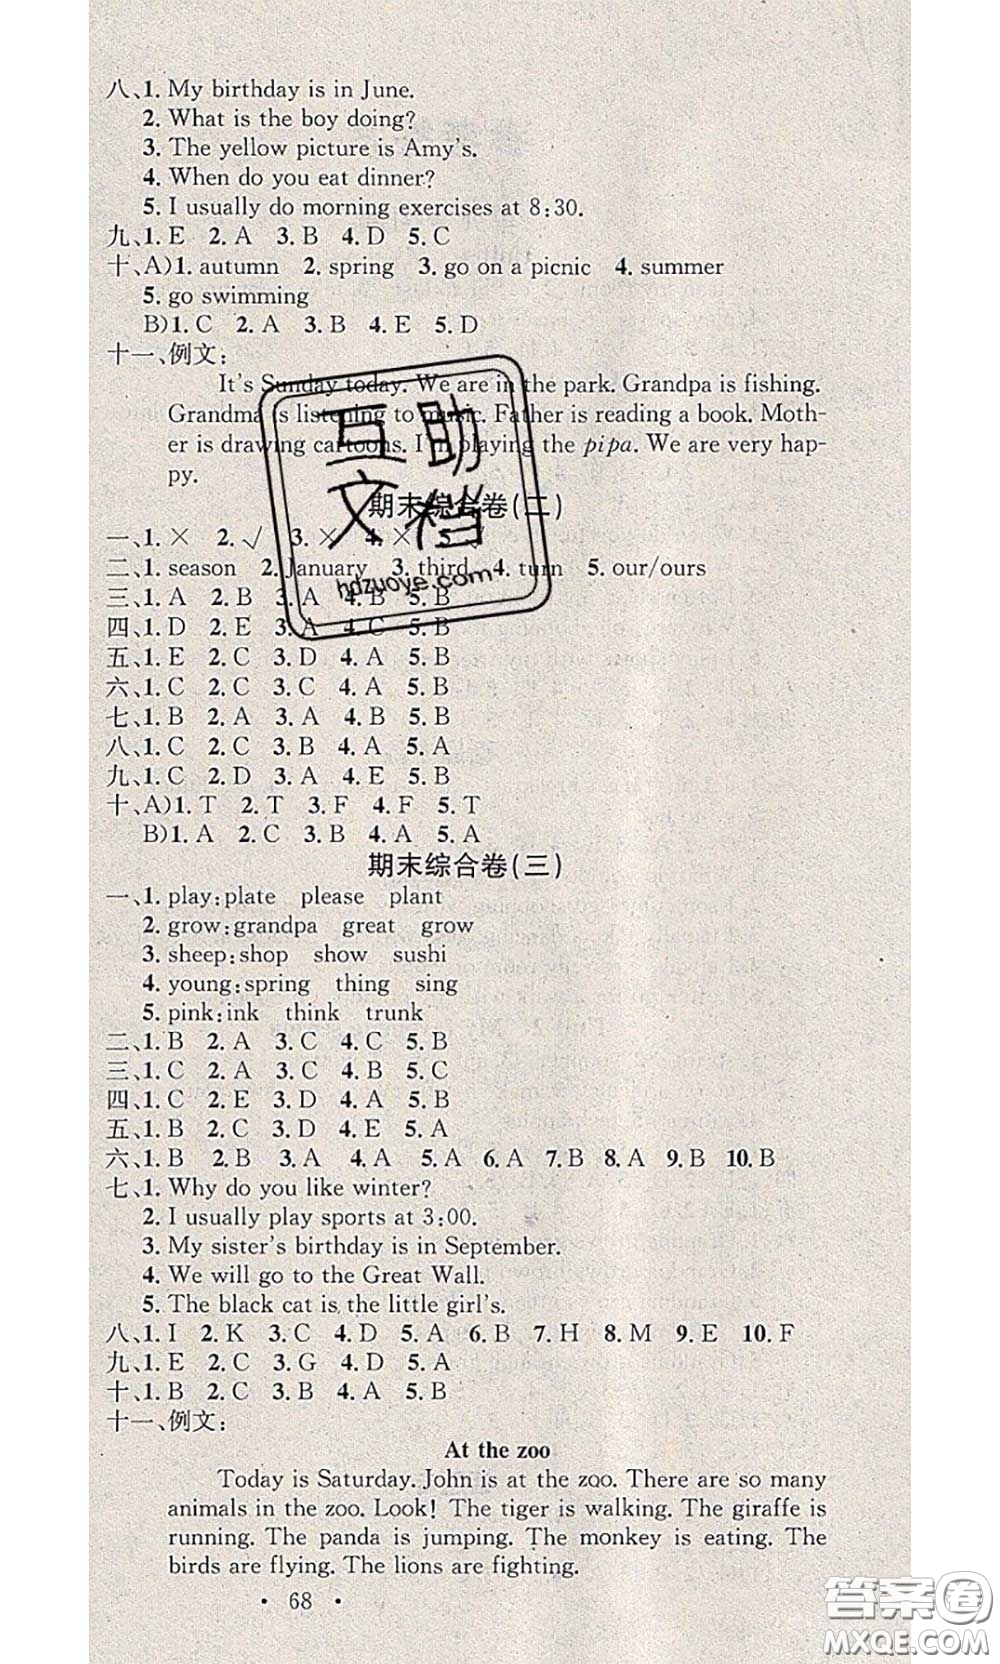 八、1. My birthday is in June.
2. What is the boy doing?
3. The yellow picture is Amy's.
4. When do you eat dinner?
5. I usually do morning exercises at 8:30.
九、1. E 2. A 3. B 4. D 5. C
十、A)1. autumn 2. spring 3. go on a picnic 4. summer
5. go swimming
B)1. C 2. A 3. B 4. E 5. D
十一、例文:
It's Sunday today. We are in the park. Grandpa is fishing.
Grandma is listening to music. Father is reading a book. Moth-
er is drawing cartoons. I'm playing the pipa. We are very hap-
py.
期末综合卷(二)
一、1. × 2. √ 3. × 4. × 5. √
二、1. season 2. January 3. third 4. turn 5. our/ours
三、1. A 2. B 3. A 4. B 5. B
四、1. D 2. E 3. A 4. C 5. B
五、1. E 2. C 3. D 4. A 5. B
六、1. C 2. C 3. C 4. A 5. B
七、1. B 2. A 3. A 4. B 5. B
八、1. C 2. C 3. B 4. A 5. A
九、1. C 2. D 3. A 4. E 5. B
十、A)1. T 2. T 3. F 4. F 5. T
B)1. A 2. C 3. B 4. A 5. A
期末综合卷(三)
一、1. play:plate please plant
2. grow:grandpa great grow
3. sheep:shop show sushi
4. young:spring thing sing
5. pink:ink think trunk
二、1. B 2. A 3. C 4. C 5. B
三、1. C 2. A 3. C 4. B 5. C
四、1. C 2. E 3. D 4. A 5. B
五、1. B 2. C 3. D 4. E 5. A
六、1. B 2. B 3. A 4. A 5. A 6. A 7. B 8. A 9. B 10. B
七、1. Why do you like winter?
2. I usually play sports at 3:00.
3. My sister's birthday is in September.
4. We will go to the Great Wall.
5. The black cat is the little girl's.
八、1. I 2. K 3. C 4. D 5. A 6. B 7. H 8. M 9. E 10. F
九、1. E 2. C 3. G 4. D 5. A
十、1. B 2. C 3. B 4. A 5. B
十一、例文:
At the zoo
Today is Saturday. John is at the zoo. There are so many
animals in the zoo. Look! The tiger is walking. The giraffe is
running. The panda is jumping. The monkey is eating. The
birds are flying. The lions are fighting.
• 68 •
互助
文档
hdzuoye.com
答案圈
MXQE.COM